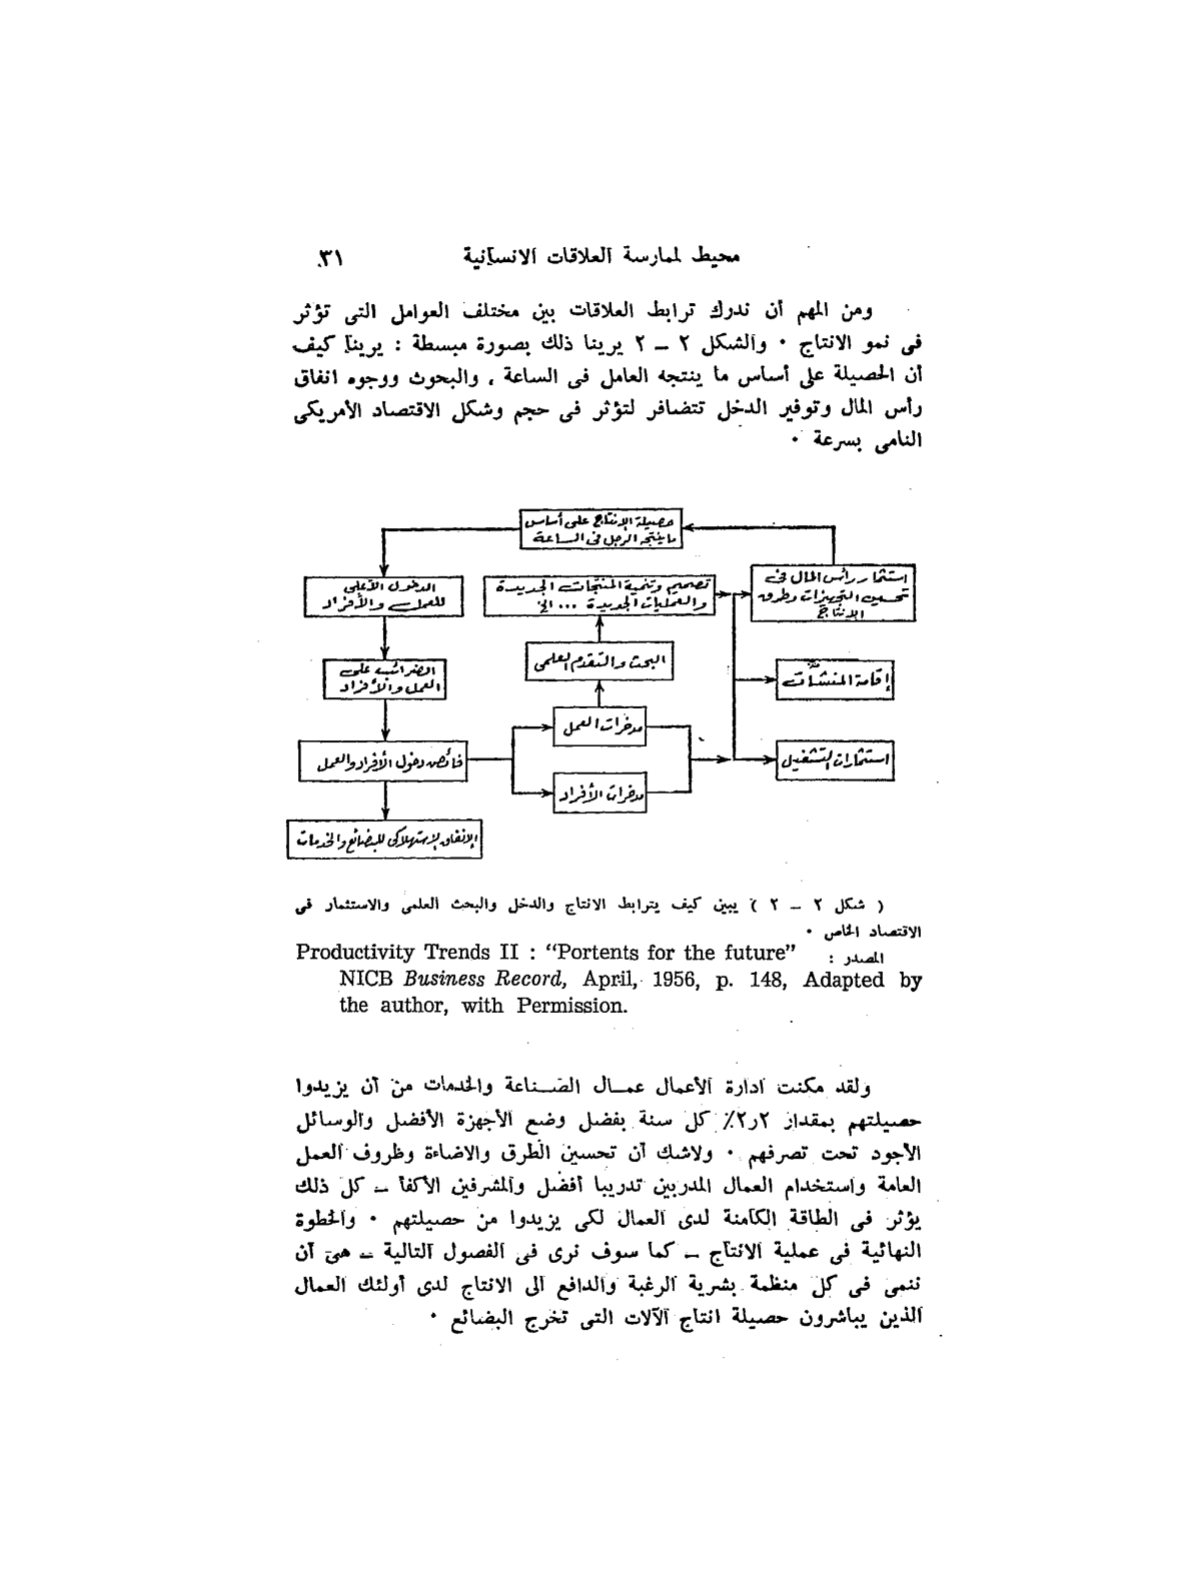 محيط لممارسة العلاقات الانسانية
٣١
ومن المهم أن ندرك ترابط العلاقات بين مختلف العوامل التى تؤثر
فى نمو الانتاج • والشكل ٢ – ٢ يرينا ذلك بصورة مبسطة : يرينا كيف
أن الحصيلة على أساس ما ينتجه العامل فى الساعة ، والبحوث ووجوه انفاق
رأس المال وتوفير الدخل تتضافر لتؤثر فى حجم وشكل الاقتصاد الأمريكى
النامى بسرعة •
حصيلة الإنتاج على أساس
ما ينتجه الرجل فى الساعة
استثمار رأس المال فى
تحسين التجهيزات وطرق
الإنتاج
تصميم وتنمية المنتجات الجديدة
والعمليات الجديدة ... الخ
الدخول الأعلى
للعمل والأفراد
البحث والتقدم العلمى
الضرائب على
العمل والأفراد
إقامة المنشآت
مدخرات العمل
فائض دخول الأفراد والعمل
استثمارات التشغيل
مدخرات الأفراد
الإنفاق الاستهلاكى للبضائع والخدمات
( شكل ٢ – ٢ ) يبين كيف يترابط الانتاج والدخل والبحث العلمى والاستثمار فى
الاقتصاد الخاص •
المصدر : Productivity Trends II : “Portents for the future”
NICB Business Record, April, 1956, p. 148, Adapted by
the author, with Permission.
ولقد مكنت ادارة الأعمال عمــال الصــناعة والخدمات من أن يزيدوا
حصيلتهم بمقدار ٢ر٢٪ كل سنة بفضل وضع الأجهزة الأفضل والوسائل
الأجود تحت تصرفهم • ولاشك أن تحسين الطرق والاضاءة وظروف العمل
العامة واستخدام العمال المدربين تدريبا أفضل والمشرفين الأكفأ – كل ذلك
يؤثر فى الطاقة الكامنة لدى العمال لكى يزيدوا من حصيلتهم • والخطوة
النهائية فى عملية الانتاج – كما سوف نرى فى الفصول التالية – هى أن
ننمى فى كل منظمة بشرية الرغبة والدافع الى الانتاج لدى أولئك العمال
الذين يباشرون حصيلة انتاج الآلات التى تخرج البضائع •